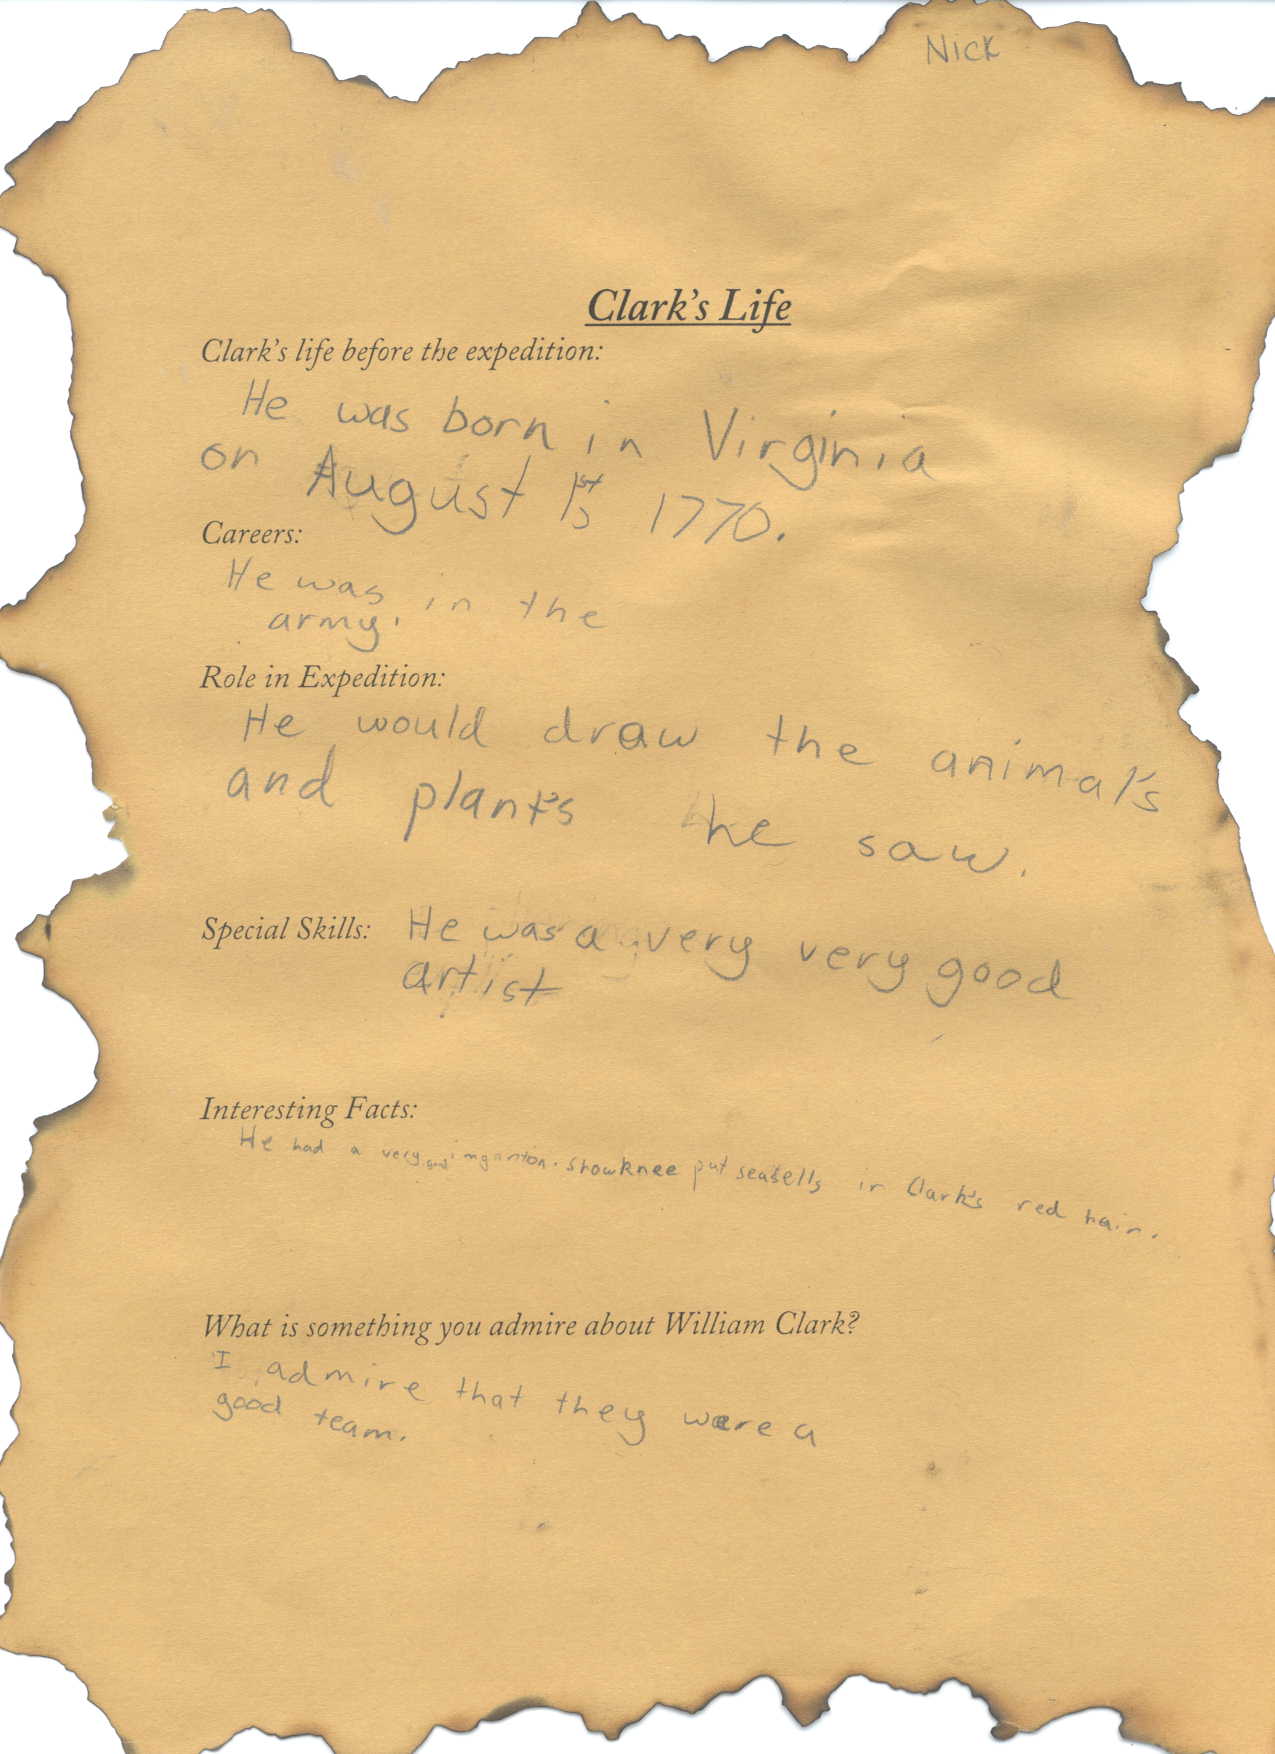 Nick
Clark's Life
Clark's life before the expedition:
He was born in Virginia
on August 1st, 1770.
Careers:
He was in the
army.
Role in Expedition:
He would draw the animal's
and plant's he saw.
Special Skills: He was a very very good
artist
Interesting Facts:
He had a very good imganton. Showknee put seasells in Clark's red hair.
What is something you admire about William Clark?
I admire that they were a
good team.